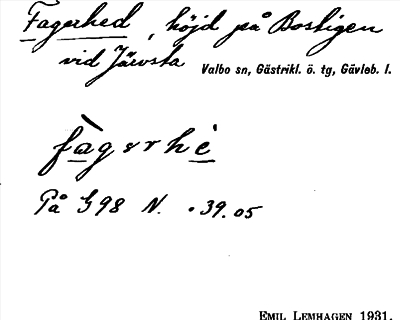 Fagerhed, höjd på Bostigen
vid Järvsta Valbo sn, Gästrikl. ö. tg, Gävleb. l.
fàgərhè
På G98 N. • 39.05
EMIL LEMHAGEN 1931.